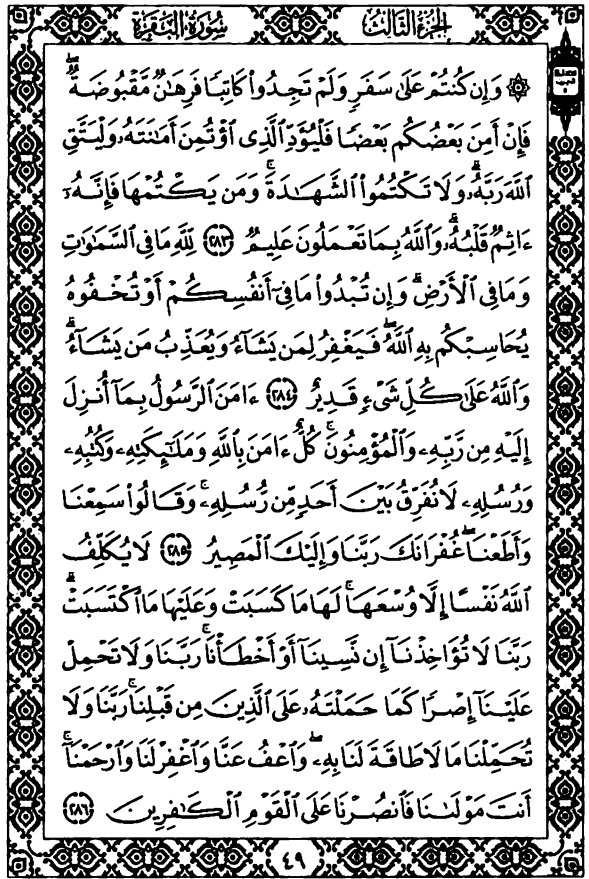 الجزء الثالث
سورة البقرة
۞ وَإِن كُنتُمْ عَلَىٰ سَفَرٍ وَلَمْ تَجِدُوا۟ كَاتِبًا فَرِهَـٰنٌ مَّقْبُوضَةٌ ۖ
فَإِنْ أَمِنَ بَعْضُكُم بَعْضًا فَلْيُؤَدِّ ٱلَّذِى ٱؤْتُمِنَ أَمَـٰنَتَهُۥ وَلْيَتَّقِ
ٱللَّهَ رَبَّهُۥ ۗ وَلَا تَكْتُمُوا۟ ٱلشَّهَـٰدَةَ ۚ وَمَن يَكْتُمْهَا فَإِنَّهُۥٓ
ءَاثِمٌ قَلْبُهُۥ ۗ وَٱللَّهُ بِمَا تَعْمَلُونَ عَلِيمٌ ٢٨٣ لِّلَّهِ مَا فِى ٱلسَّمَـٰوَٰتِ
وَمَا فِى ٱلْأَرْضِ ۗ وَإِن تُبْدُوا۟ مَا فِىٓ أَنفُسِكُمْ أَوْ تُخْفُوهُ
يُحَاسِبْكُم بِهِ ٱللَّهُ ۖ فَيَغْفِرُ لِمَن يَشَآءُ وَيُعَذِّبُ مَن يَشَآءُ ۗ
وَٱللَّهُ عَلَىٰ كُلِّ شَىْءٍ قَدِيرٌ ٢٨٤ ءَامَنَ ٱلرَّسُولُ بِمَآ أُنزِلَ
إِلَيْهِ مِن رَّبِّهِۦ وَٱلْمُؤْمِنُونَ ۚ كُلٌّ ءَامَنَ بِٱللَّهِ وَمَلَـٰٓئِكَتِهِۦ وَكُتُبِهِۦ
وَرُسُلِهِۦ لَا نُفَرِّقُ بَيْنَ أَحَدٍ مِّن رُّسُلِهِۦ ۚ وَقَالُوا۟ سَمِعْنَا
وَأَطَعْنَا ۖ غُفْرَانَكَ رَبَّنَا وَإِلَيْكَ ٱلْمَصِيرُ ٢٨٥ لَا يُكَلِّفُ
ٱللَّهُ نَفْسًا إِلَّا وُسْعَهَا ۚ لَهَا مَا كَسَبَتْ وَعَلَيْهَا مَا ٱكْتَسَبَتْ ۗ
رَبَّنَا لَا تُؤَاخِذْنَآ إِن نَّسِينَآ أَوْ أَخْطَأْنَا ۚ رَبَّنَا وَلَا تَحْمِلْ
عَلَيْنَآ إِصْرًا كَمَا حَمَلْتَهُۥ عَلَى ٱلَّذِينَ مِن قَبْلِنَا ۚ رَبَّنَا وَلَا
تُحَمِّلْنَا مَا لَا طَاقَةَ لَنَا بِهِۦ ۖ وَٱعْفُ عَنَّا وَٱغْفِرْ لَنَا وَٱرْحَمْنَآ ۚ
أَنتَ مَوْلَىٰنَا فَٱنصُرْنَا عَلَى ٱلْقَوْمِ ٱلْكَـٰفِرِينَ ٢٨٦
٤٩